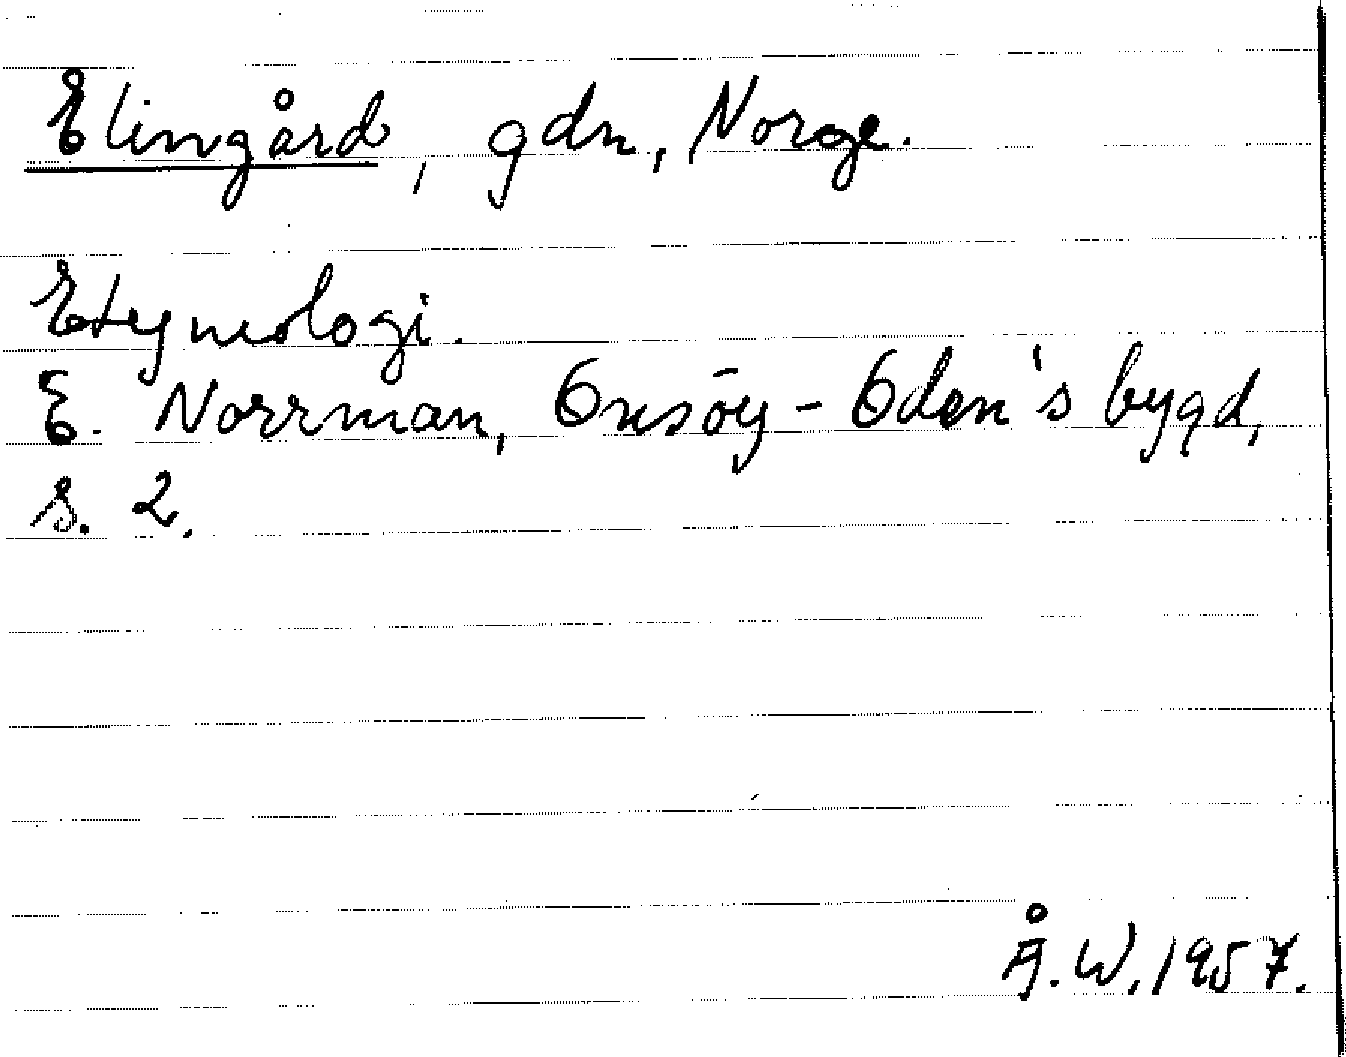 Elingård, gdn, Norge.
Etymologi.
E. Norrman, Onsöy - Oden's bygd,
s. 2.
Å.W. 1957.